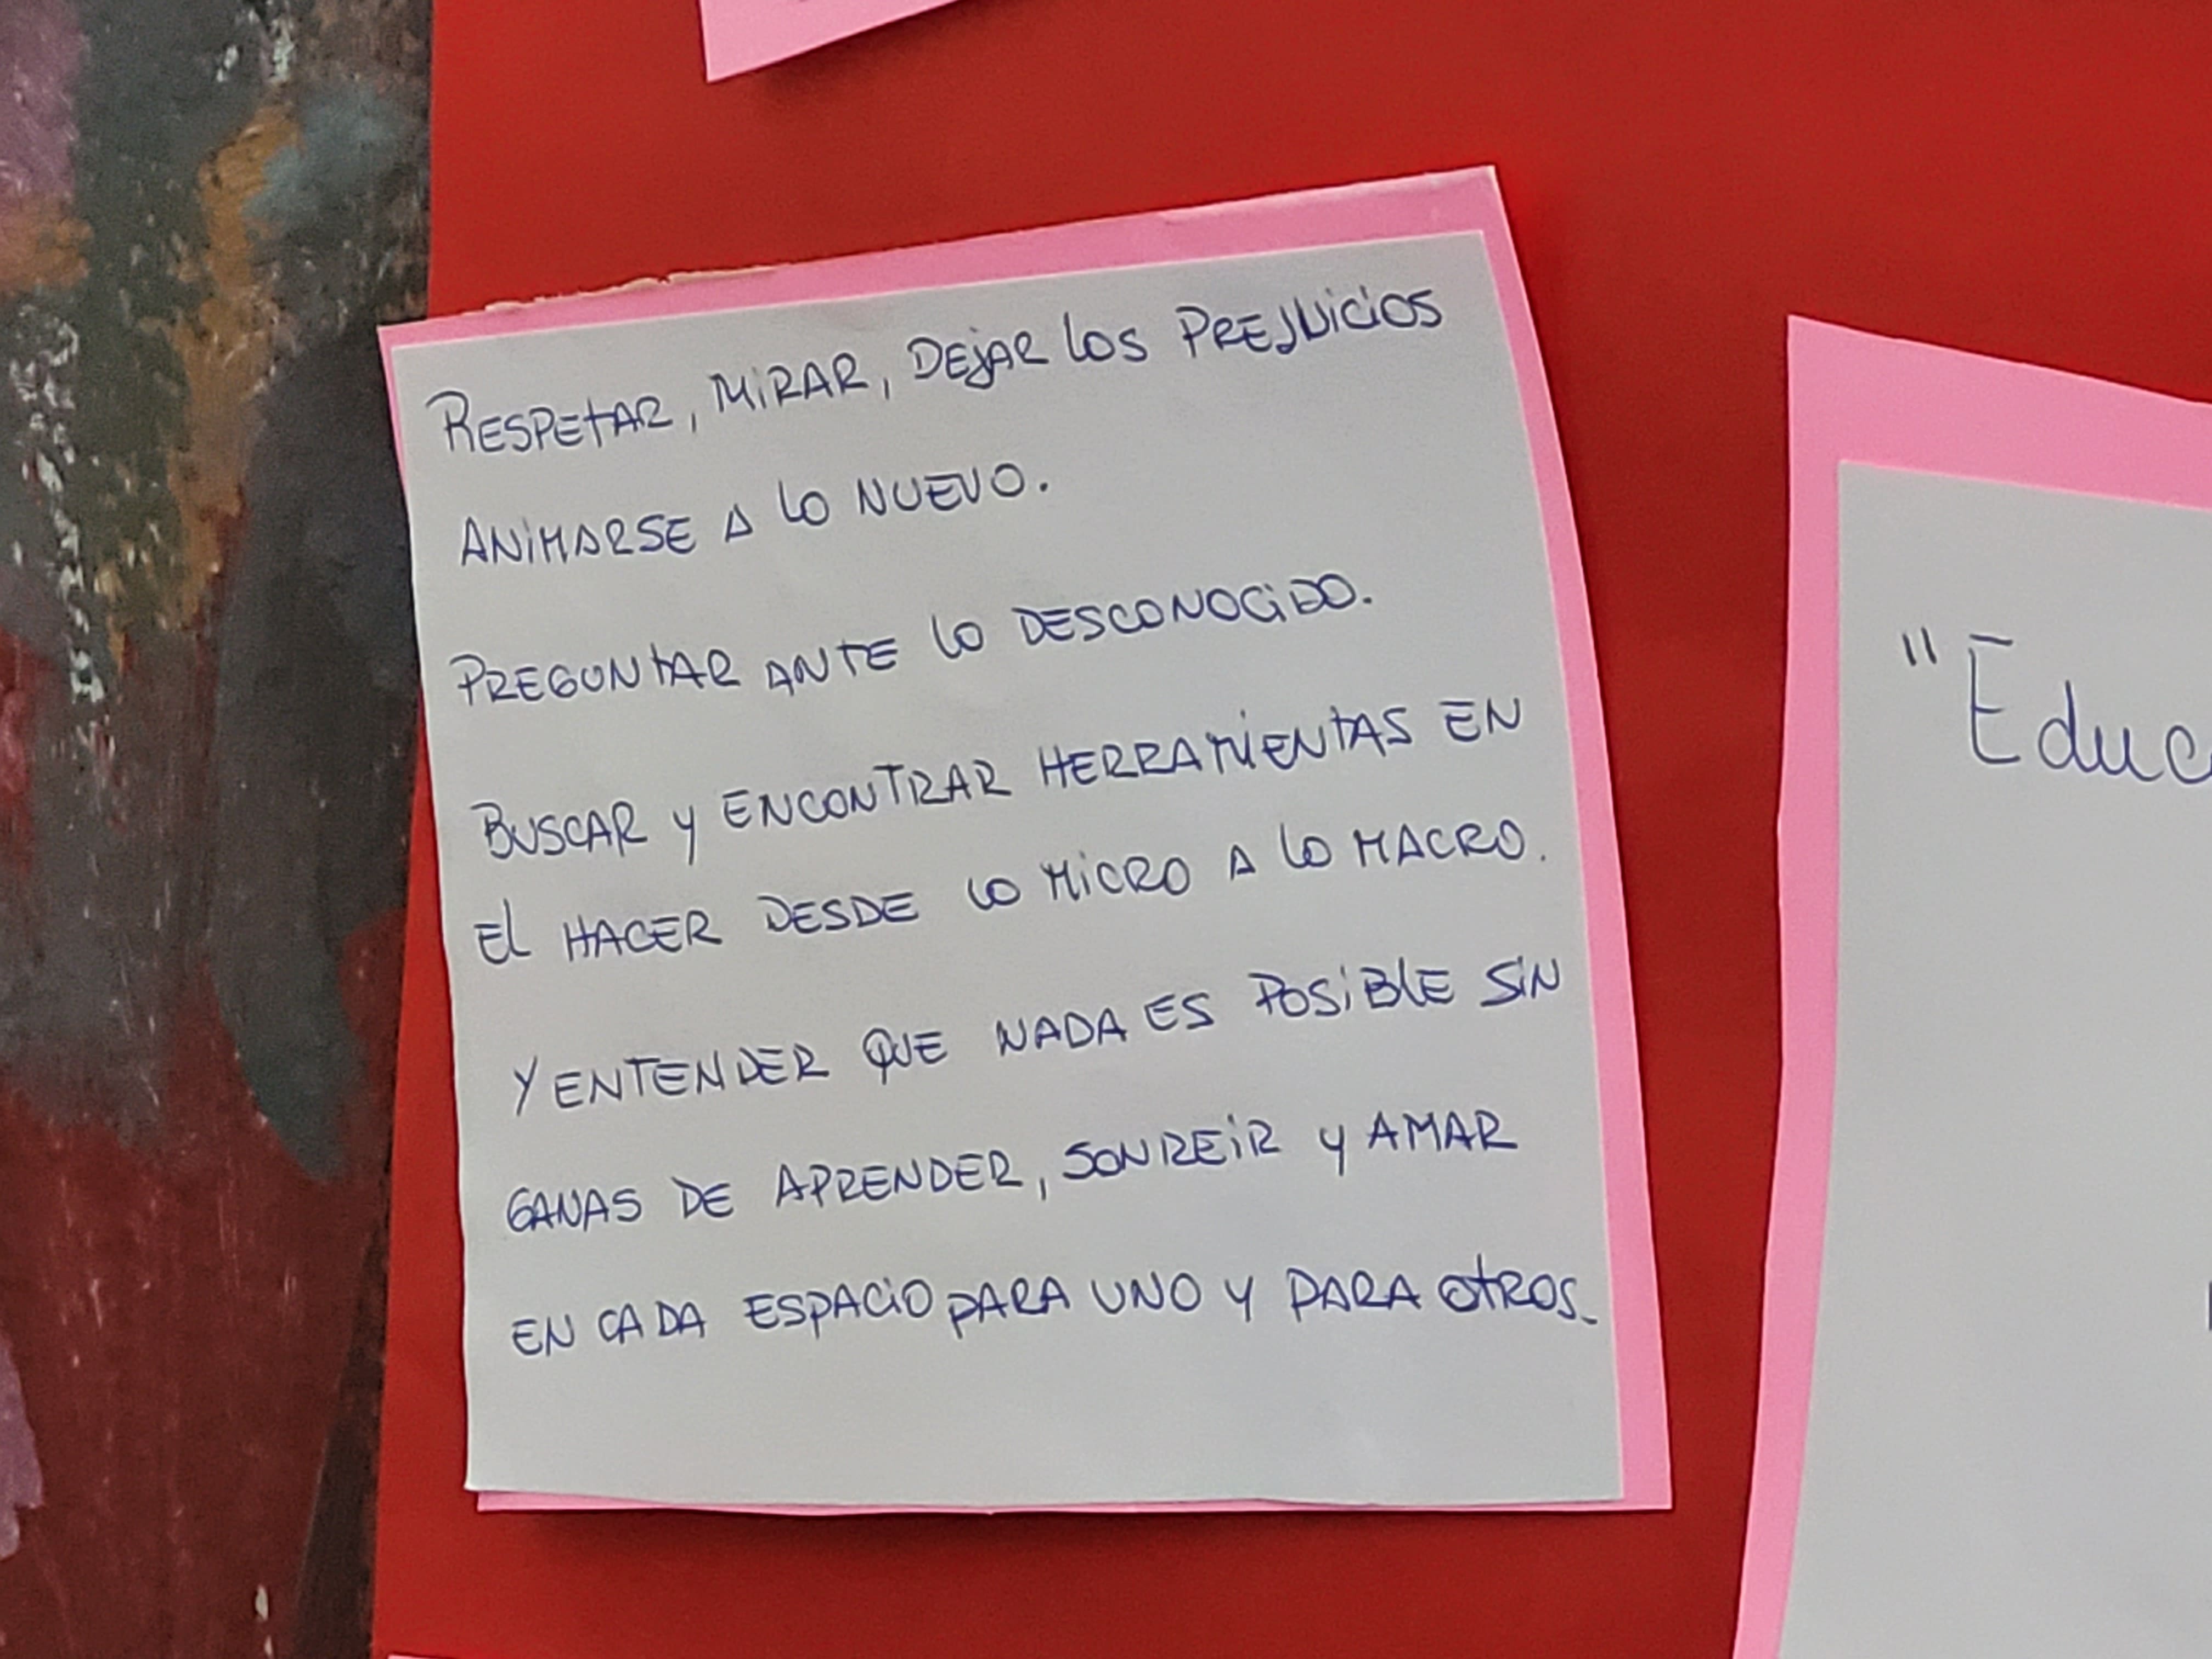 RESPETAR, MIRAR, DEJAR LOS PREJUICIOS
ANIMARSE A LO NUEVO.
PREGUNTAR ANTE LO DESCONOCIDO.
BUSCAR Y ENCONTRAR HERRAMIENTAS EN
EL HACER DESDE LO MICRO A LO MACRO.
Y ENTENDER QUE NADA ES POSIBLE SIN
GANAS DE APRENDER, SONREIR Y AMAR
EN CADA ESPACIO PARA UNO Y PARA OTROS.
"Educ